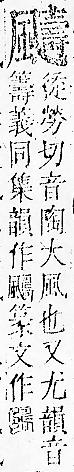 徒勞切音陶大風也又尤韻音
籌義同集韻作篆文作